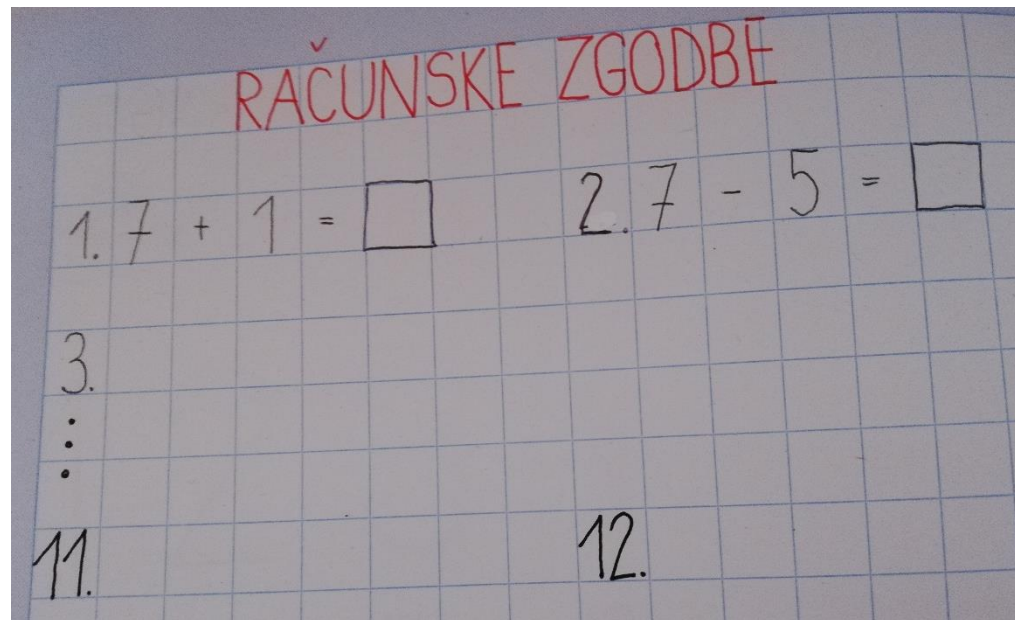 RAČUNSKE ZGODBE
1. 7 + 1 = □ 2. 7 - 5 = □
3.
⋮
11. 12.